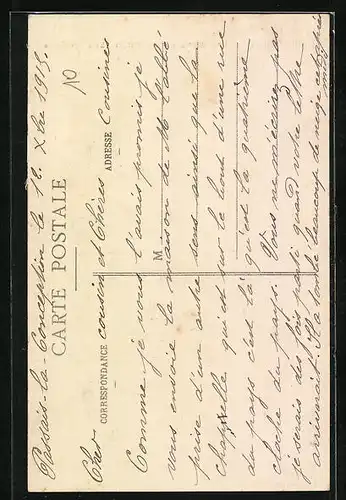 Passais-la-Conception le 1er Xbre 1915.
CARTE POSTALE
10
CORRESPONDANCE
ADRESSE
M
Cher cousin et Chères Cousines
Comme je vous l'avais promis je
vous envoie la maison de Mr
prise d'un autre sens ainsi que la
chapelle qui est sur le bout d'une rue
du pays c'est là qu'est la quatrième
cloche du pays. Vous ne m'écrire pas
je serais des fois parti quand votre lettre
arriverait. Il a tombé beaucoup de neige cet après
midi